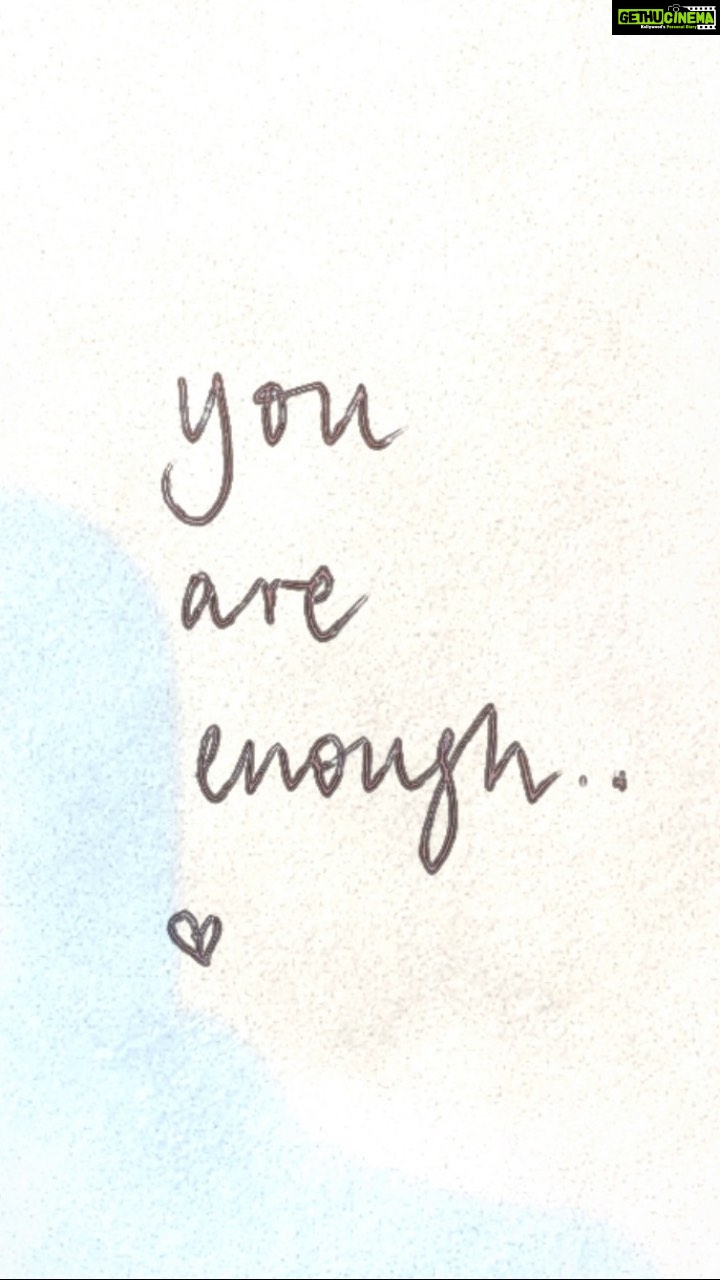 GETHUCINEMA
Kollywood's Personal Diary
you
are
enough..